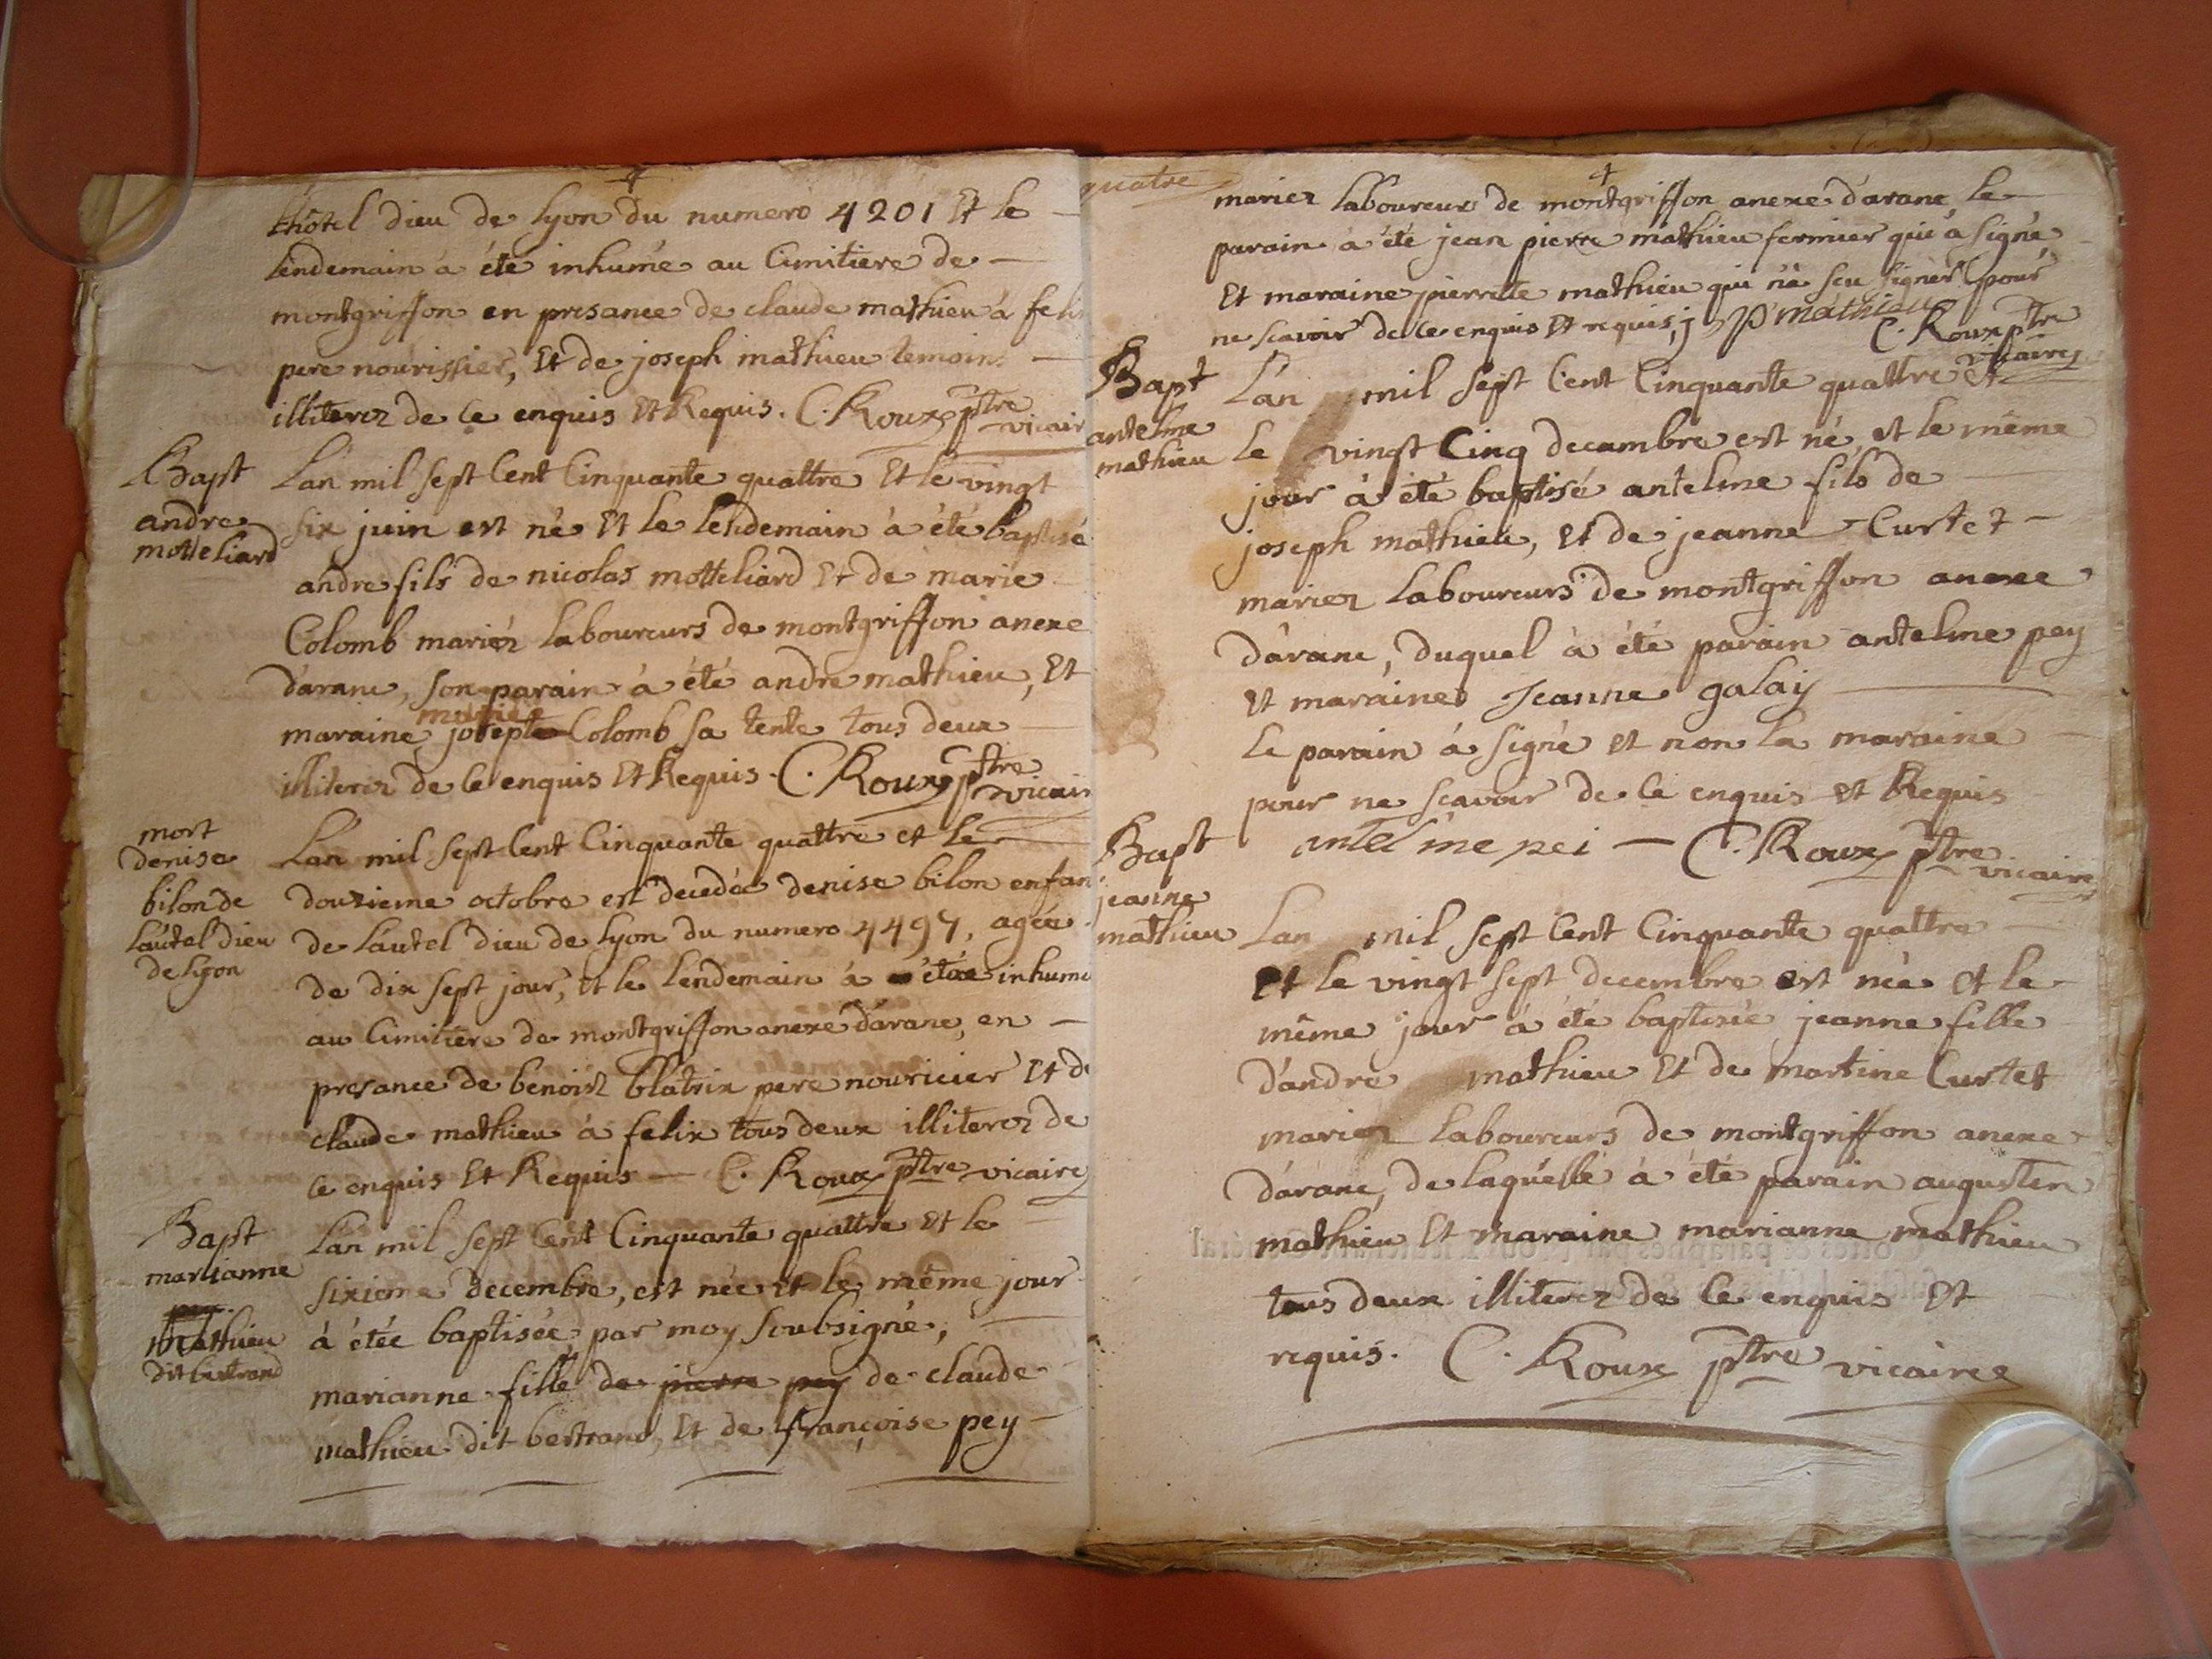 L'hôtel dieu de lyon du numero 4201 Et le
lendemain à été inhumé au Cimitiere de
montgriffon en presance de claude mathieu à feli
pere nourissier, Et de joseph mathieu temoins
illiterez de Ce enquis Et Requis. C. Roux ptre
vicair
Bapt
andre
motteliard
Lan mil sept Cent Cinquante quattre Et le vingt
six juin est né Et le lendemain à été baptisé
andre fils de nicolas motteliard Et de marie
Colomb mariéz laboureurs de montgriffon anexe
d'aranc, son parain à été andre mathieu, Et
mariee
maraine josepte Colomb sa tente tous deux
illiterez de Ce enquis Et Requis. C. Roux ptre
vicair
mort
denise
bilon de
L'autel dieu
de lyon
Lan mil sept Cent Cinquante quattre et le
douzieme octobre est decedée denise bilon enfan
de L'autel dieu de lyon du numero 4497, agée
de dix sept jour, et le lendemain à étée inhume
au Cimitiere de montgriffon anexe d'aranc, en
presance de benoist blatrix pere nouricier Et de
claude mathieu à felix tous deux illiterez de
Ce enquis Et Requis — C. Roux ptre vicaire
Bapt
marianne
pey
mathieu
dit bertrand
Lan mil sept Cent Cinquante quattre Et le
sixieme decembre, est née et le même jour
à étée baptisée par moy soubsigné,
marianne fille de pierre pey de claude
mathieu dit bertrand, Et de françoise pey
quatre
mariez laboureur de montgriffon anexe d'aranc le
parain à été jean pierre mathieu fermier qui à signé
Et maraine pierrette mathieu qui n'à sçu signer pour
ne scavoir de ce enquis Et requis, j P mathieu
C. Roux ptre
vicaire
Bapt
antelme
mathieu
L'an mil sept Cent Cinquante quattre et
le vingt Cinq decambre est né, et le même
jour à été baptisé antelme fils de
joseph mathieu, Et de jeanne Curtet
mariez laboureurs de montgriffon anexe
d'aranc, duquel à été parain antelme pey
et maraine Jeanne galay
Le parain à signé et non la maraine
pour ne scavoir de Ce enquis et Requis
antel me pei — C. Roux ptre
vicaire
Bapt
jeanne
mathieu
Lan mil sept Cent Cinquante quattre
Et le vingt sept decembre est née et le
même jour à été baptisée jeanne fille
d'andre mathieu Et de martine Curtet
mariez laboureurs de montgriffon anexe
d'aranc, de laquelle à été parain augustin
mathieu Et maraine marianne mathieu
tous deux illiterez de Ce enquis Et
requis. C. Roux ptre vicaire